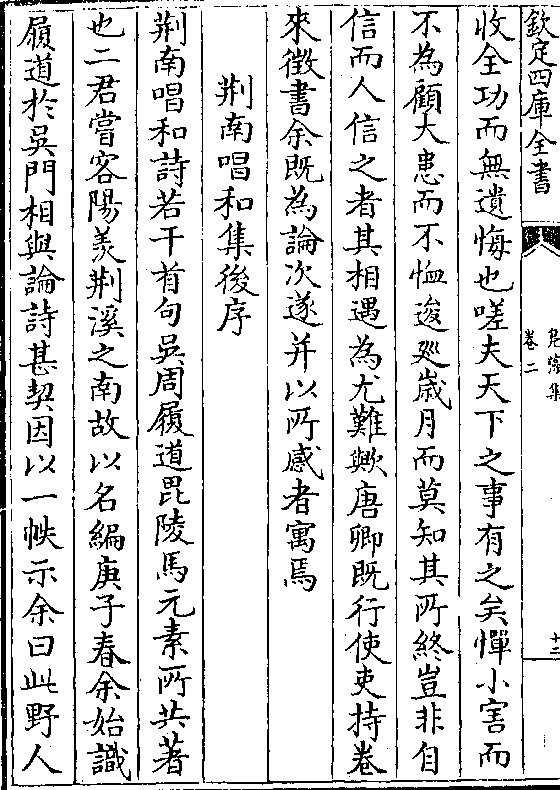 欽定四庫全書
卷二
十三
收全功而無遺悔也嗟夫天下之事有之矣憚小害而
不為顧大患而不恤逡廵歳月而莫知其所終豈非自
信而人信之者其相遇為尤難歟唐卿既行使吏持卷
來徵書余既為論次遂并以所感者寓焉
荆南唱和集後序
荆南唱和詩若干首句吳周履道毘陵馬元素所共著
也二君嘗客陽羡荆溪之南故以名編庚子春余始識
履道於吳門相與論詩甚契因以一帙示余曰此野人